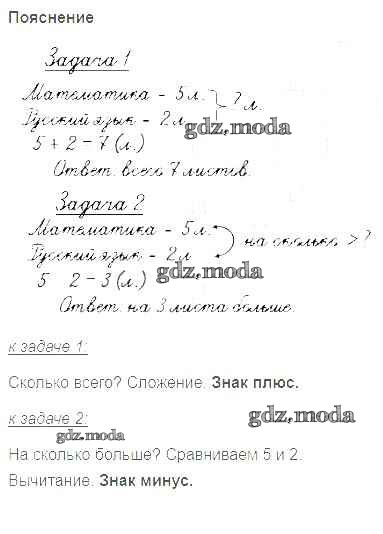 Пояснение
Задача 1
Математика - 5 л. } ? л.
Русский язык - 2 л
gdz.moda
5 + 2 - 7 (л.)
Ответ. всего 7 листов.
Задача 2
Математика - 5 л.
на сколько > ?
Русский язык - 2 л
gdz.moda
5 2 - 3 (л.)
Ответ. на 3 листа больше.
к задаче 1:
Сколько всего? Сложение. Знак плюс.
к задаче 2:
gdz.moda
gdz.moda
На сколько больше? Сравниваем 5 и 2.
Вычитание. Знак минус.